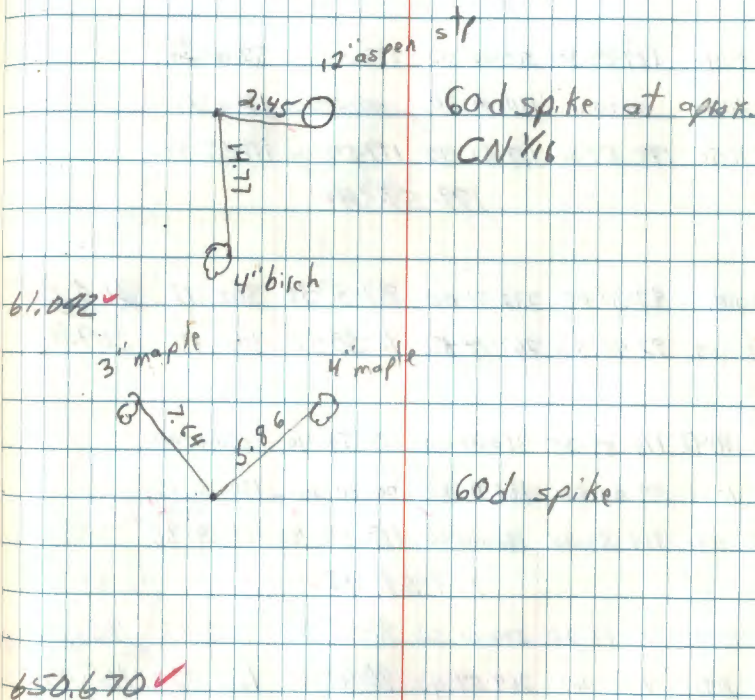 stp
12" aspen
2.45
60d spike at aprox.
CN 1/16
4" birch
61.092
3" maple
4" maple
5.86
60d spike
650.670